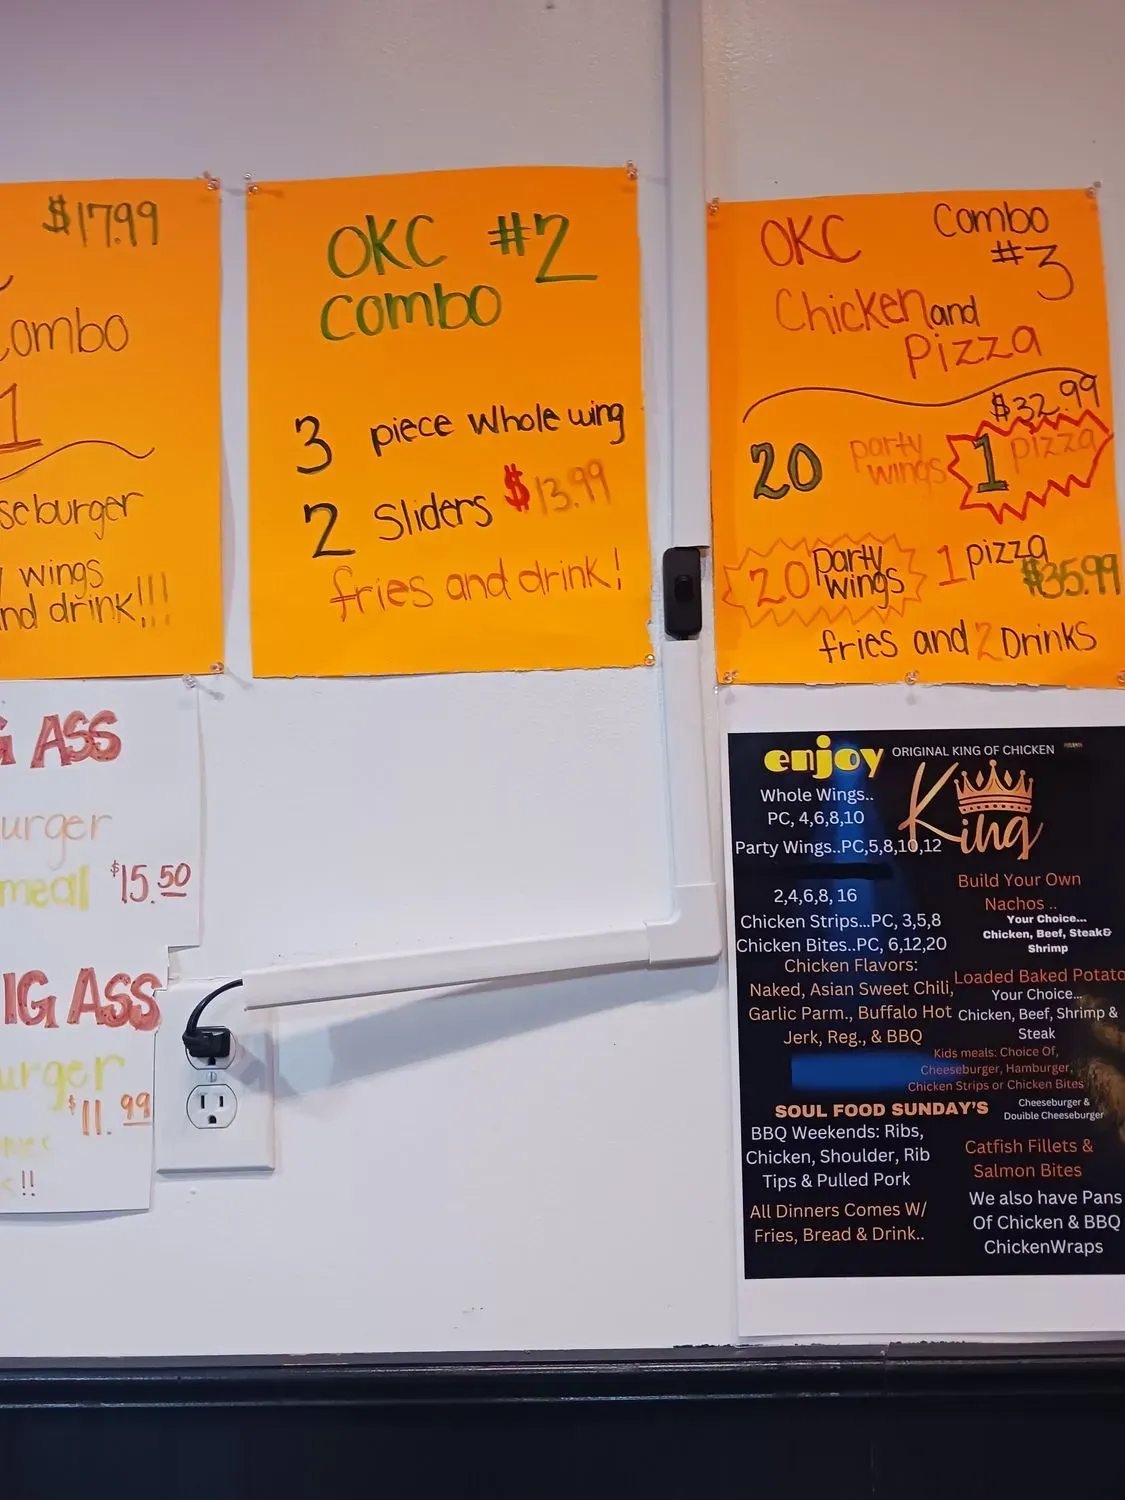 $17.99
Combo
1
seburger
wings
nd drink!!!
OKC #2
Combo
3 piece whole wing
2 Sliders $13.99
fries and drink!
OKC Combo
#3
Chicken and
Pizza
$32.99
20 party wings 1 pizza
20 party wings 1 pizza
$35.99
fries and 2 Drinks
G ASS
urger
meal $15.50
IG ASS
urger
$11.99
!!
enjoy
ORIGINAL KING OF CHICKEN
King
Whole Wings..
PC, 4,6,8,10
Party Wings..PC,5,8,10,12
2,4,6,8, 16
Chicken Strips...PC, 3,5,8
Chicken Bites..PC, 6,12,20
Chicken Flavors:
Naked, Asian Sweet Chili,
Garlic Parm., Buffalo Hot
Jerk, Reg., & BBQ
SOUL FOOD SUNDAY'S
BBQ Weekends: Ribs,
Chicken, Shoulder, Rib
Tips & Pulled Pork
All Dinners Comes W/
Fries, Bread & Drink..
Build Your Own
Nachos ..
Your Choice...
Chicken, Beef, Steak&
Shrimp
Loaded Baked Potato
Your Choice...
Chicken, Beef, Shrimp &
Steak
Kids meals: Choice Of,
Cheeseburger, Hamburger,
Chicken Strips or Chicken Bites
Cheeseburger &
Douible Cheeseburger
Catfish Fillets &
Salmon Bites
We also have Pans
Of Chicken & BBQ
ChickenWraps